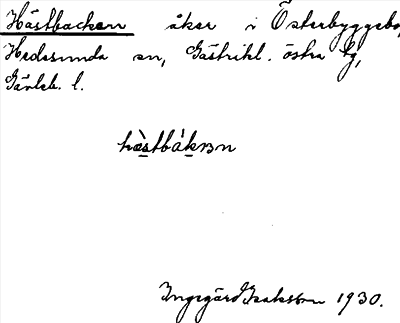 Hästbacken åker i Österbyggebo,
Hedesunda sn, Gästrikl. östra tg,
Gävleb. l.
hὰstbákɜn
Ingegärd Isaksson 1930.